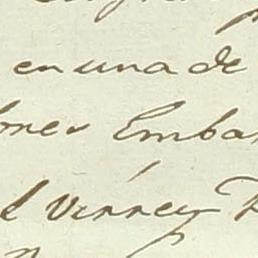 en una de
ones Emba
l Virrey